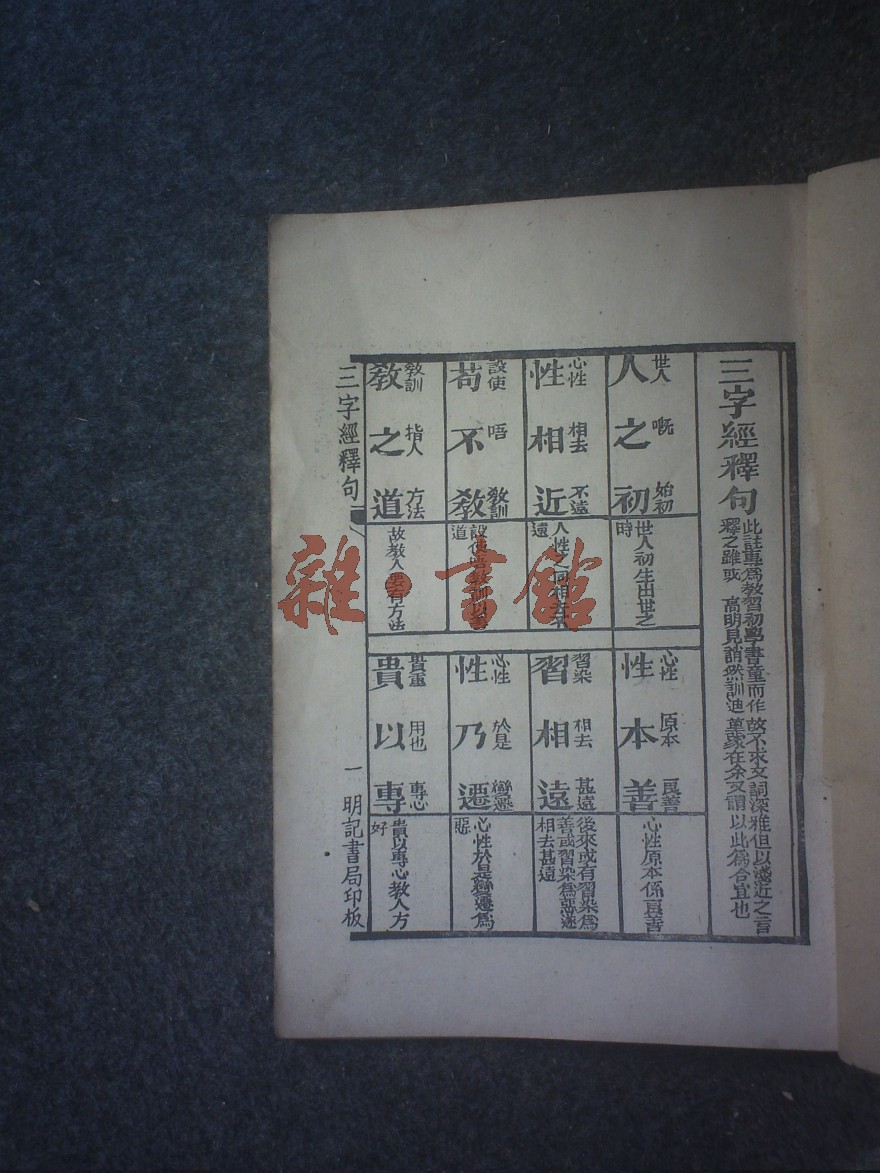 三字經釋句
此註專為教習初學書童而作故不求文詞深雅但以淺近之言
釋之雖或 高明見誚然訓迪蒙在余又謂以此為合宜也
人之初
世人 嘅 始初
世人初生出世之
時
性本善
心性 原本 良善
心性原本係良善
性相近
心性 相去 不遠
人性之相去不
遠
習相遠
習染 相去 甚遠
後來或有習染為
善或習染為惡遂
相去甚遠
苟不教
設使 唔 教訓
設使唔教訓以
道
性乃遷
心性 於是 變遷
心性於是變遷為
惡
教之道
教訓 指人 方法
故教人要有方法
貴以專
貴重 用也 專心
貴以專心教人方
好
三字經釋句
一 明記書局印板
雜·書館